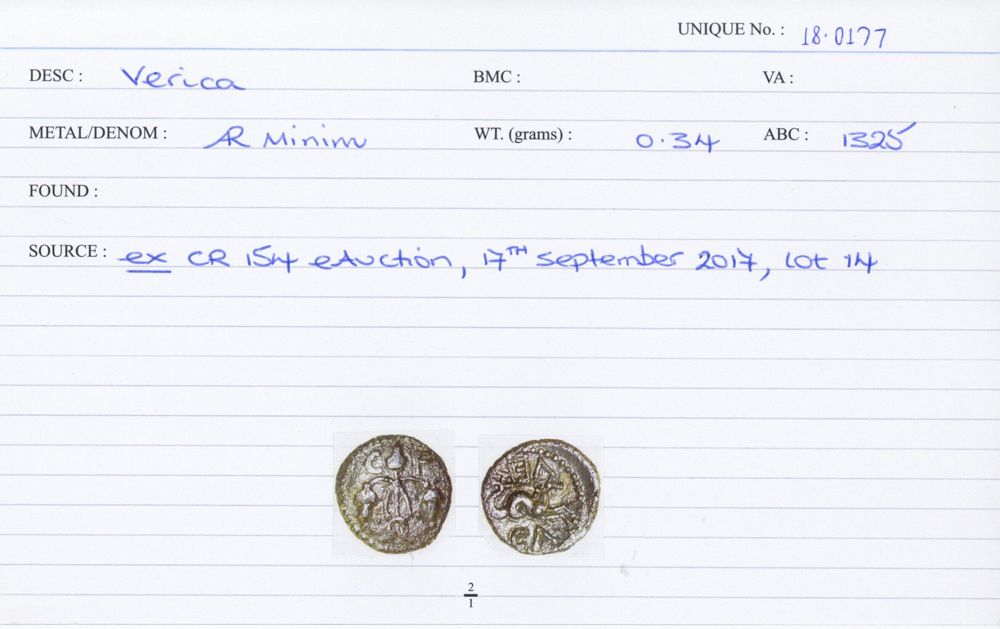 UNIQUE No. : 18.0177
DESC : Verica BMC : VA :
METAL/DENOM : AR Minim WT. (grams) : 0.34 ABC : 1325
FOUND :
SOURCE : ex CR 154 eAuction, 17TH September 2017, Lot 14
2
1